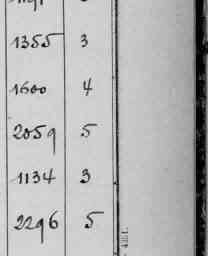 1355 3
1600 4
2059 5
1134 3
2296 5